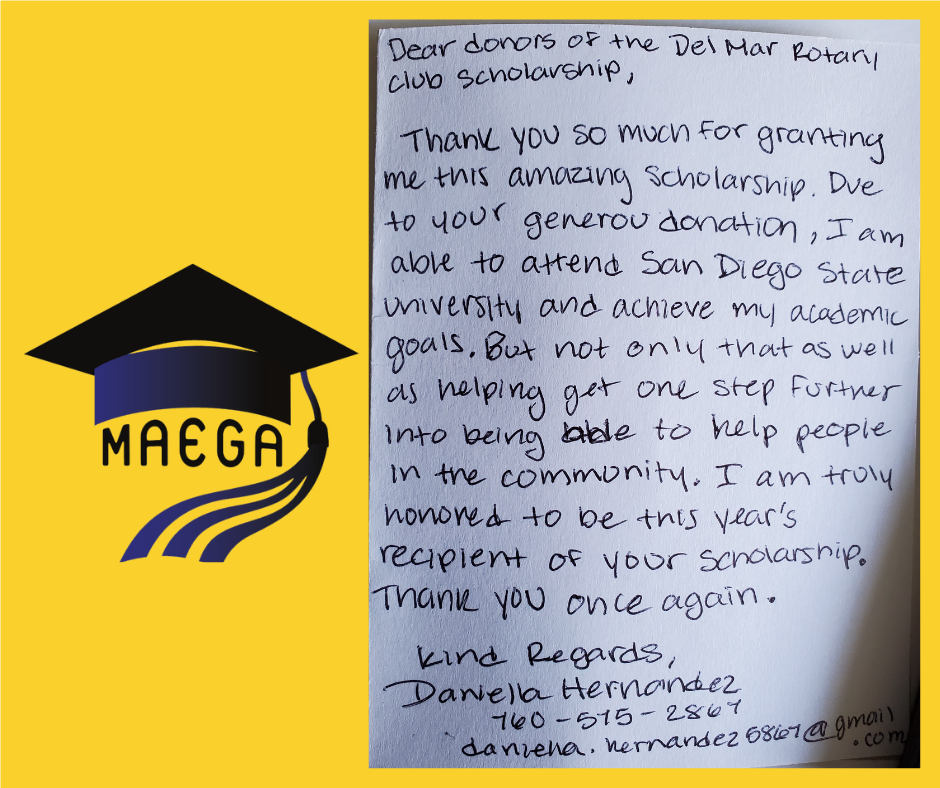 MAEGA
Dear donors of the Del Mar Rotary
club scholarship,
Thank you so much for granting
me this amazing scholarship. Due
to your generou donation, I am
able to attend San Diego State
university and achieve my academic
goals. But not only that as well
as helping get one step further
into being able to help people
in the community. I am truly
honored to be this year's
recipient of your scholarship.
Thank you once again.
Kind Regards,
Daniella Hernandez
760-575-2867
daniella.hernandez5867@gmail
.com